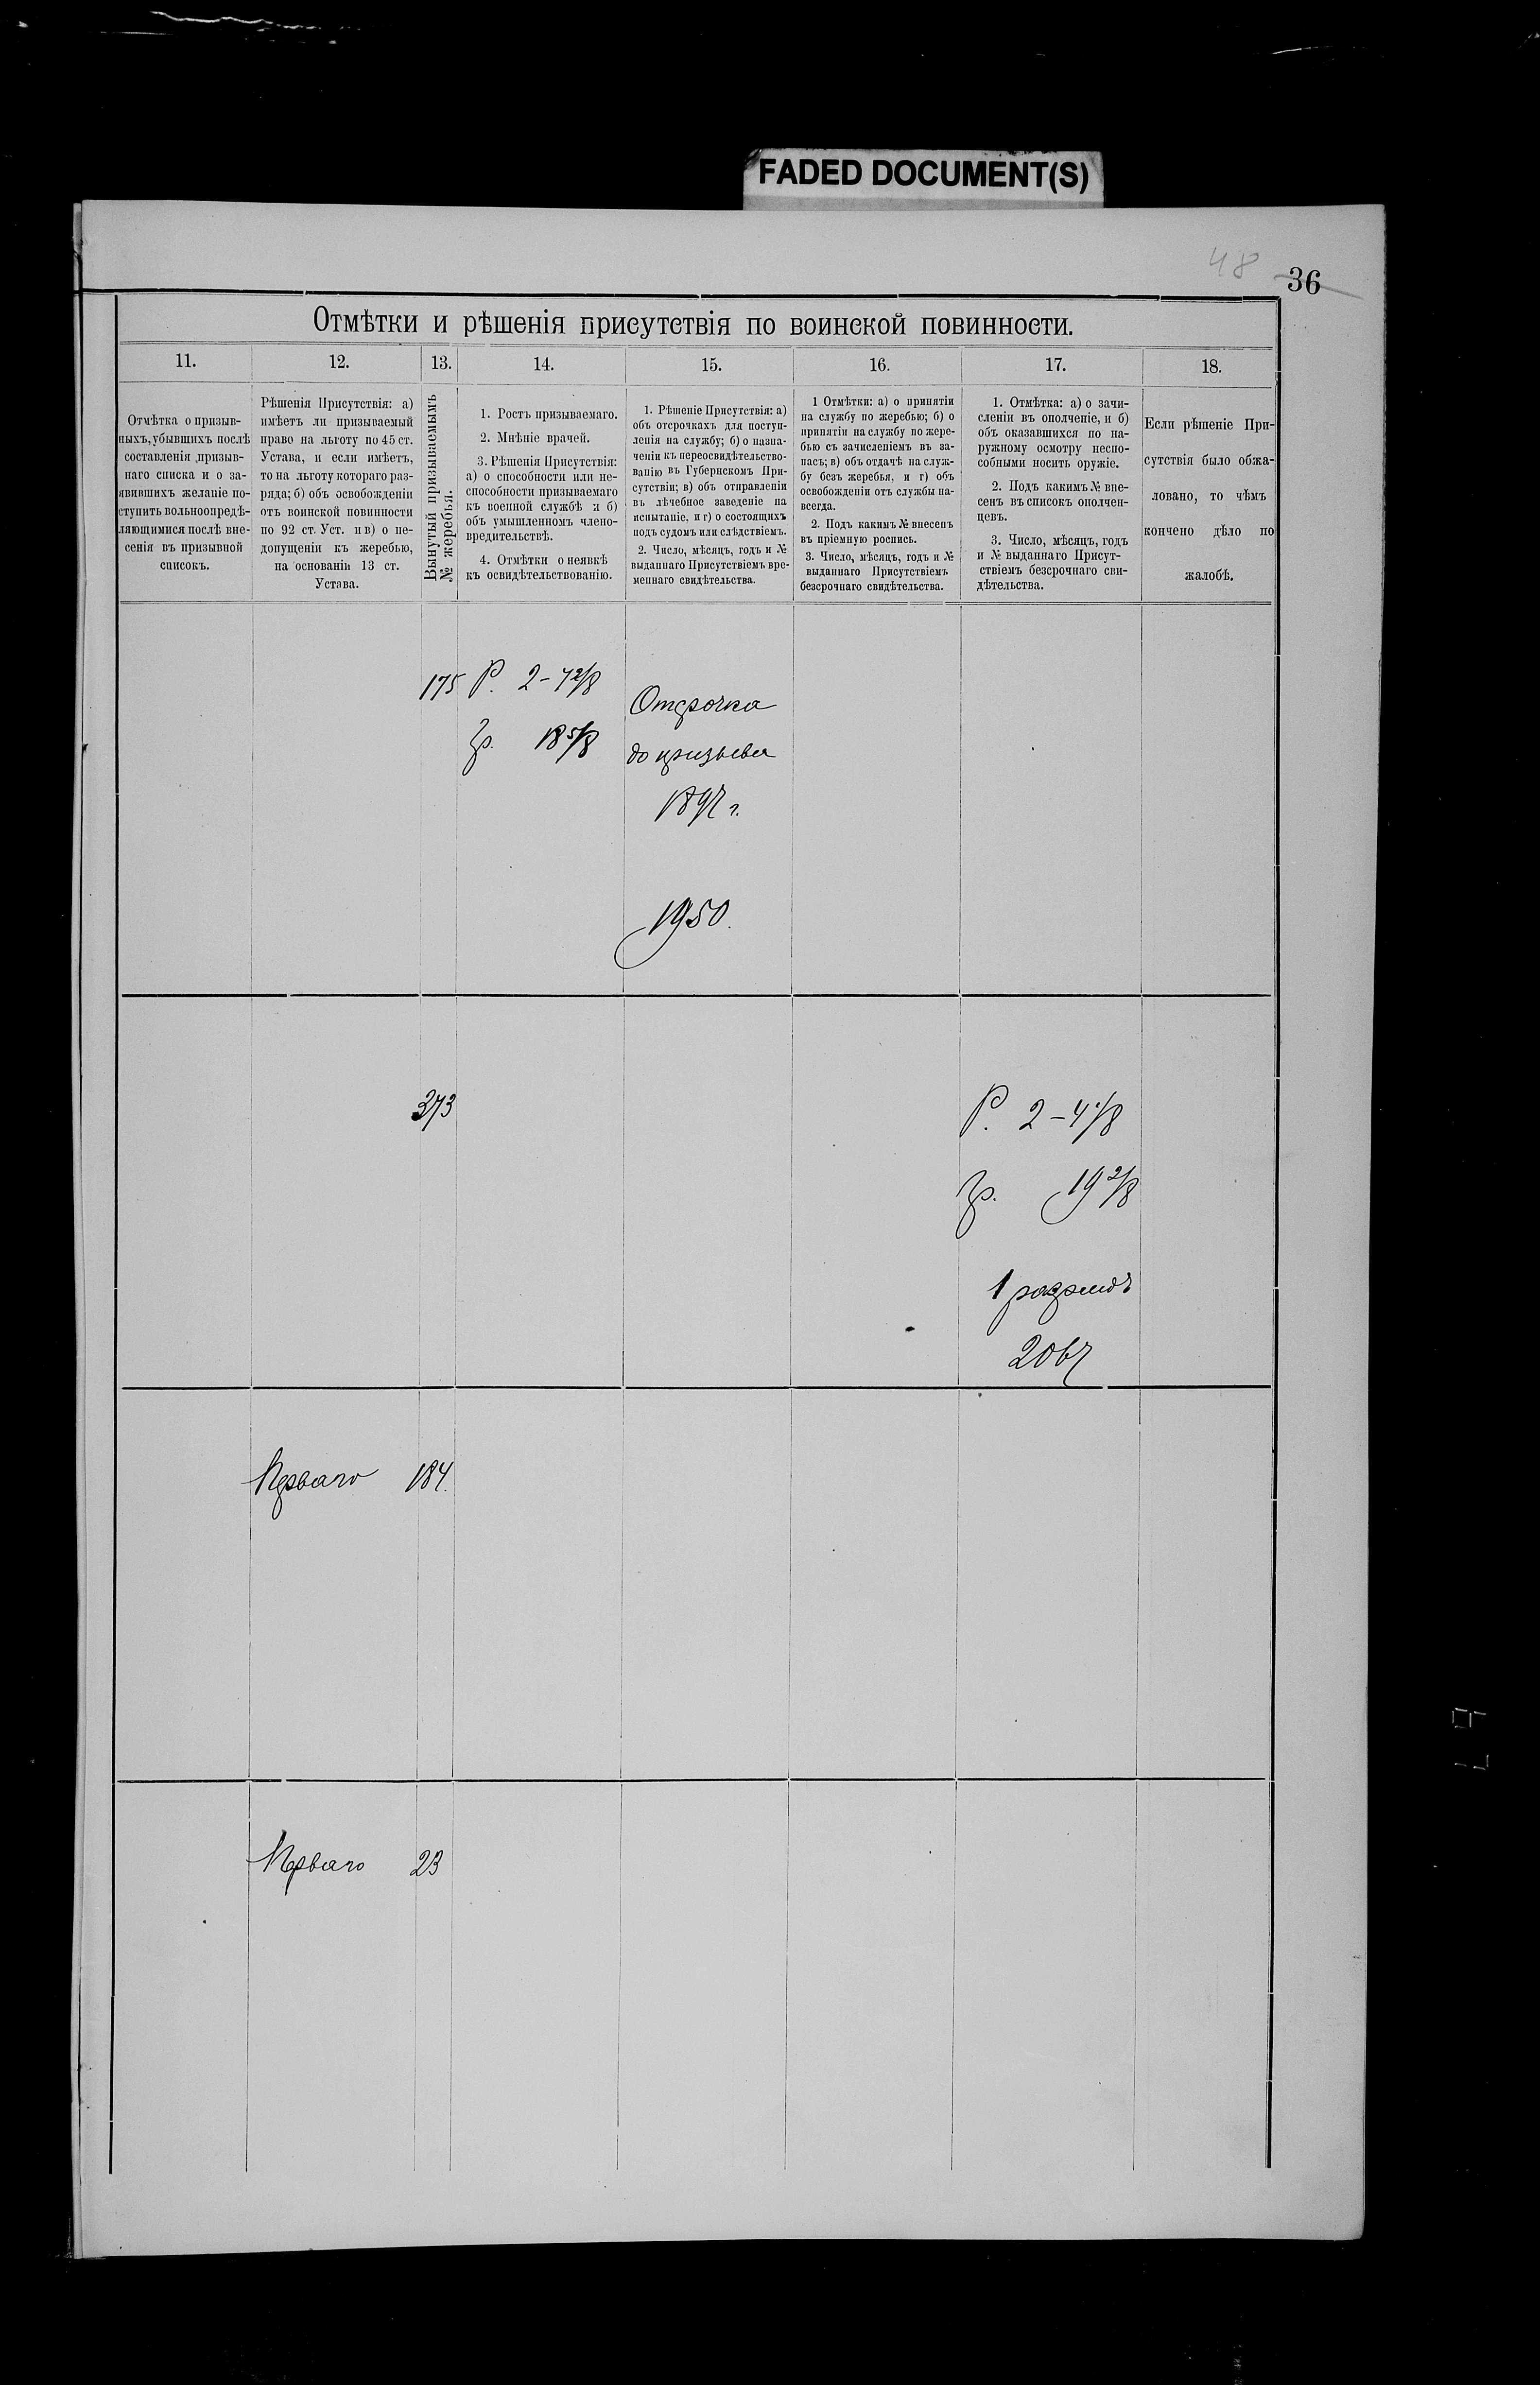 FADED DOCUMENT(S)
48
36
Отмѣтки и рѣшенія присутствія по воинской повинности.
11.
12.
13.
14.
15.
16.
17.
18.
Отмѣтка о призыв-
ныхъ, убывшихъ послѣ
составленія призыв-
наго списка и о за-
явившихъ желаніе по-
ступить вольноопредѣ-
ляющимися послѣ вне-
сенія въ призывной
списокъ.
Рѣшенія Присутствія: а)
имѣетъ ли призываемый
право на льготу по 45 ст.
Устава, и если имѣетъ,
то на льготу котораго раз-
ряда; б) объ освобожденіи
отъ воинской повинности
по 92 ст. Уст. и в) о не-
допущеніи къ жеребью,
на основаніи 13 ст.
Устава.
Вынутый призываемымъ
№ жеребья.
1. Ростъ призываемаго.
2. Мнѣніе врачей.
3. Рѣшенія Присутствія:
а) о способности или не-
способности призываемаго
къ военной службѣ и б)
объ умышленномъ члено-
вредительствѣ.
4. Отмѣтки о неявкѣ
къ освидѣтельствованію.
1. Рѣшеніе Присутствія: а)
объ отсрочкахъ для поступ-
ленія на службу; б) о назна-
ченіи къ переосвидѣтельство-
ванію въ Губернскомъ При-
сутствіи; в) объ отправленіи
въ лѣчебное заведеніе на
испытаніе, и г) о состоящихъ
подъ судомъ или слѣдствіемъ.
2. Число, мѣсяцъ, годъ и №
выданнаго Присутствіемъ вре-
меннаго свидѣтельства.
1 Отмѣтки: а) о принятіи
на службу по жеребью; б) о
принятіи на службу по жере-
бью съ зачисленіемъ въ за-
пасъ; в) объ отдачѣ на служ-
бу безъ жеребья, и г) объ
освобожденіи отъ службы на-
всегда.
2. Подъ какимъ № внесенъ
въ пріемную роспись.
3. Число, мѣсяцъ, годъ и №
выданнаго Присутствіемъ
безсрочнаго свидѣтельства.
1. Отмѣтка: а) о зачи-
сленіи въ ополченіе, и б)
объ оказавшихся по на-
ружному осмотру неспо-
собными носить оружіе.
2. Подъ какимъ № вне-
сенъ въ списокъ ополчен-
цевъ.
3. Число, мѣсяцъ, годъ
и № выданнаго Присут-
ствіемъ безсрочнаго сви-
дѣтельства.
Если рѣшеніе При-
сутствія было обжа-
ловано, то чѣмъ
кончено дѣло по
жалобѣ.
175 Р. 2-4 2/8
Гр. 18 5/8
Отсрочка
до призыва
1897 г.
1950.
373
Р. 2-4 1/8
Гр. 19 2/8
1 разрядъ
2067
Перваго 184.
Перваго 23
67